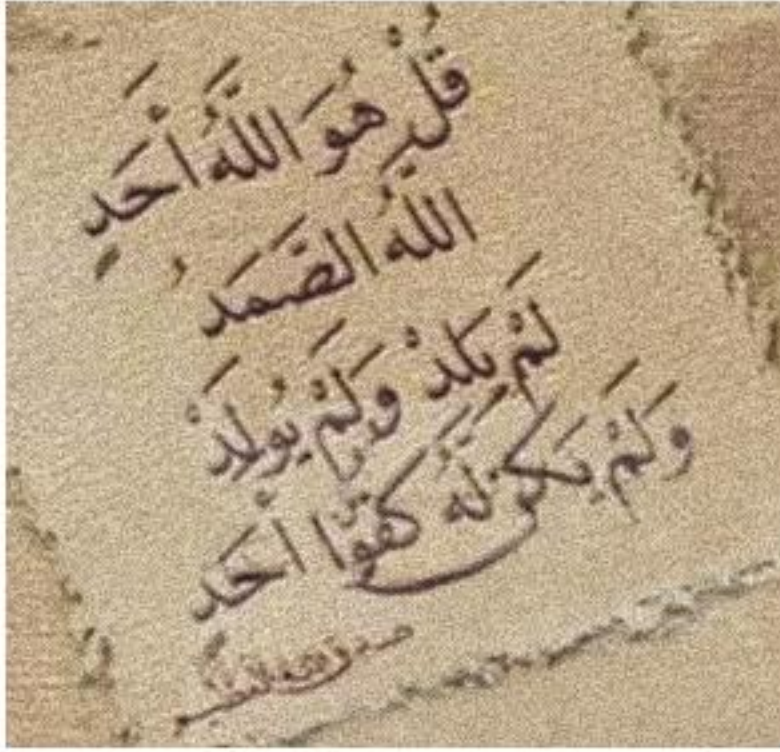 قُلْ هُوَ اللَّهُ أَحَدٌ
اللَّهُ الصَّمَدُ
لَمْ يَلِدْ وَلَمْ يُولَدْ
وَلَمْ يَكُن لَّهُ كُفُوًا أَحَدٌ
صدق الله العظيم